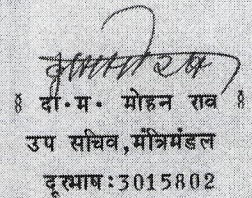 ॥ दा॰म॰ मोहन राव ॥
उप सचिव,मंत्रिमंडल
दूरभाष:3015802